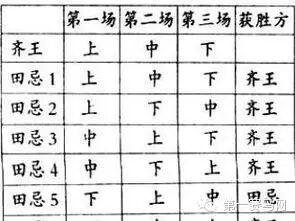 第一场 第二场 第三场 获胜方
齐王 上 中 下
田忌1 上 中 下 齐王
田忌2 上 下 中 齐王
田忌3 中 上 下 齐王
田忌4 中 下 上 齐王
田忌5 下 上 中 田忌